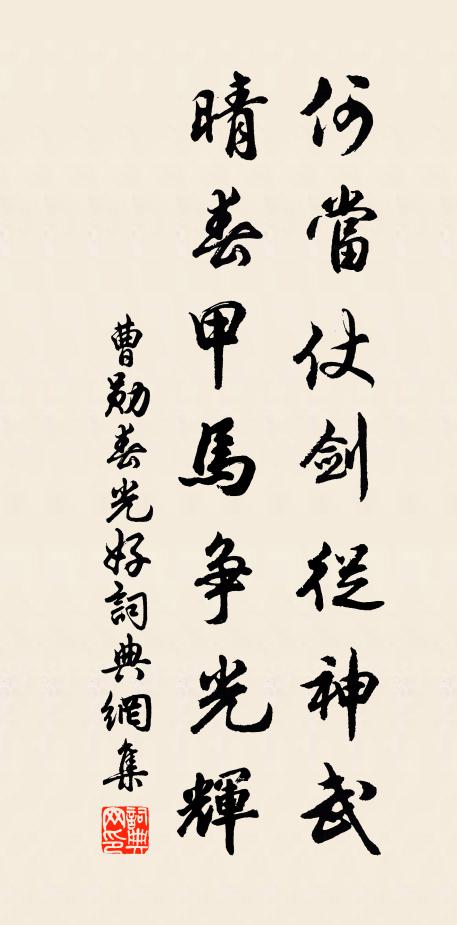 何當仗劍從神武
晴春甲馬争光輝
曹勛春光好詞典網集
詞典网印